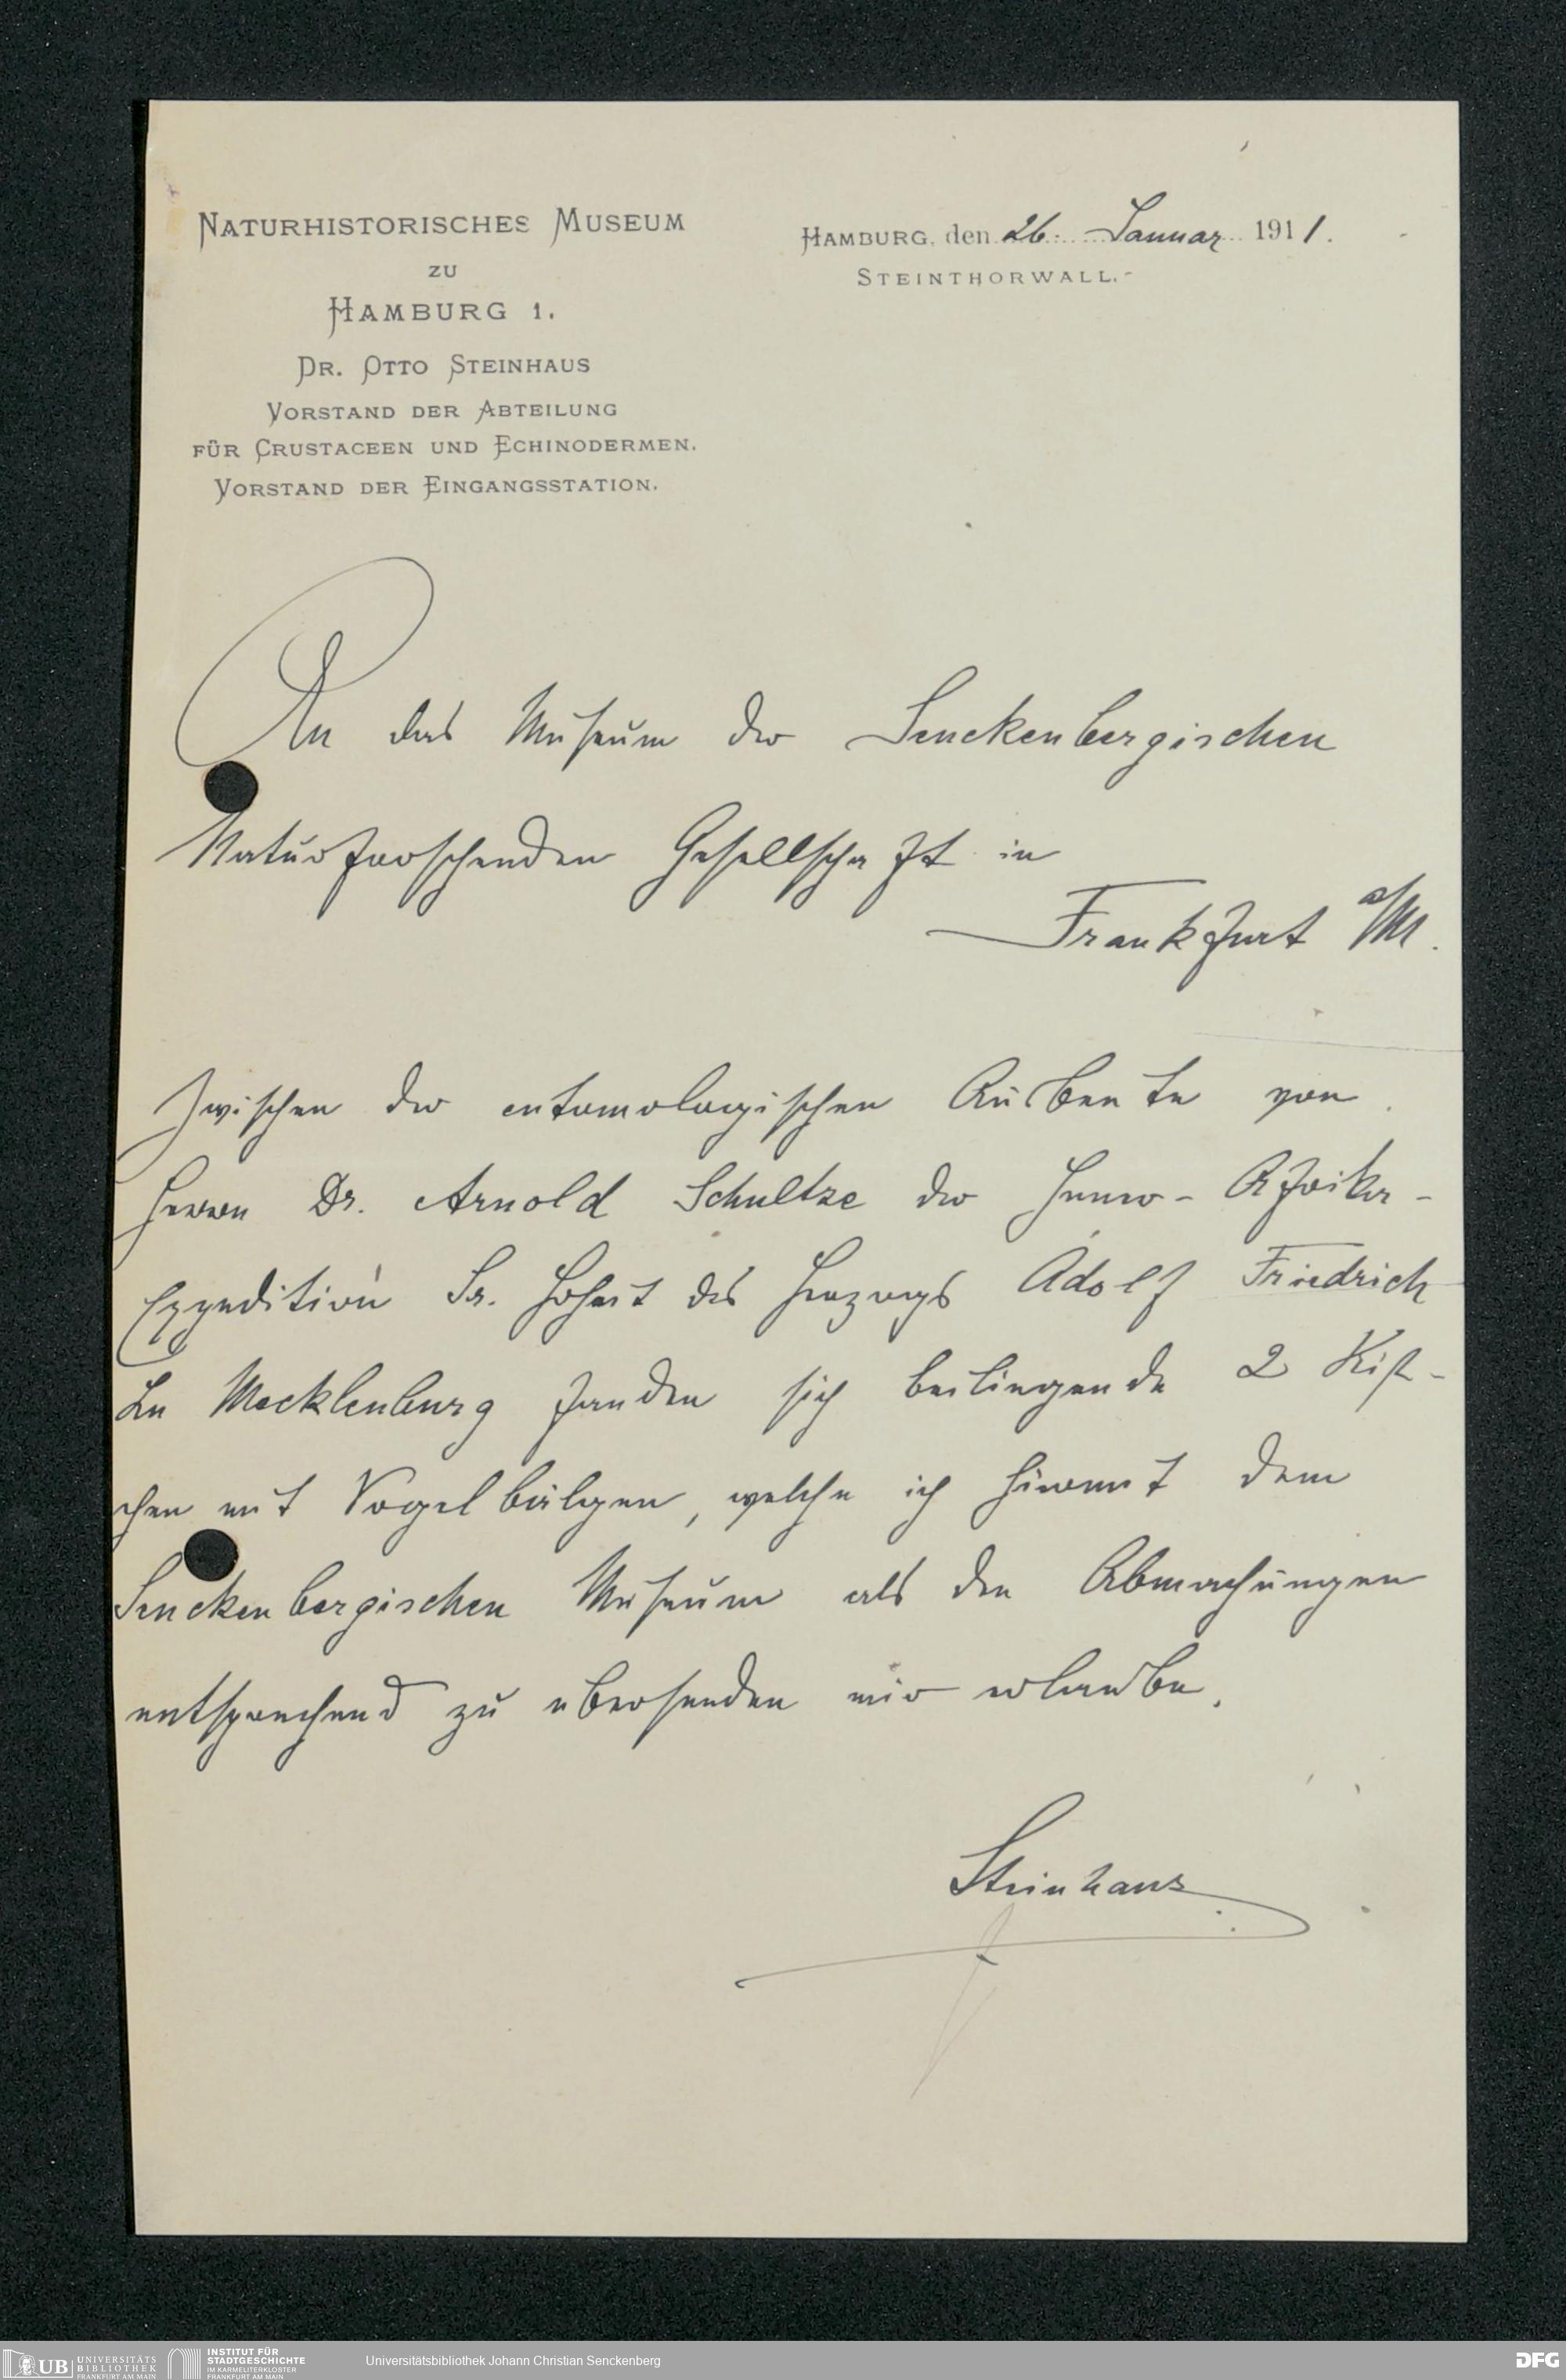 NATURHISTORISCHES MUSEUM
ZU
HAMBURG 1.
DR. OTTO STEINHAUS
VORSTAND DER ABTEILUNG
FÜR CRUSTACEEN UND ECHINODERMEN.
VORSTAND DER EINGANGSSTATION.
HAMBURG, den 26. Januar 1911.
STEINTHORWALL.
An das Museum der Senckenbergischen
Naturforschenden Gesellschaft in
Frankfurt a/M.
Zwischen der entomologischen Ausbeute von
Herrn Dr. Arnold Schultze der Inner-Afrika-
Expedition Sr. Hoheit des Herzogs Adolf Friedrich
zu Mecklenburg fanden sich beiliegende 2 Kist-
chen mit Vogelbälgen, welche ich hiermit dem
Senckenbergischen Museum als den Abmachungen
entsprechend zu übersenden mir erlaube.
Steinhaus
UB UNIVERSITÄTS
BIBLIOTHEK
FRANKFURT AM MAIN
INSTITUT FÜR
STADTGESCHICHTE
IM KARMELITERKLOSTER
FRANKFURT AM MAIN
Universitätsbibliothek Johann Christian Senckenberg
DFG